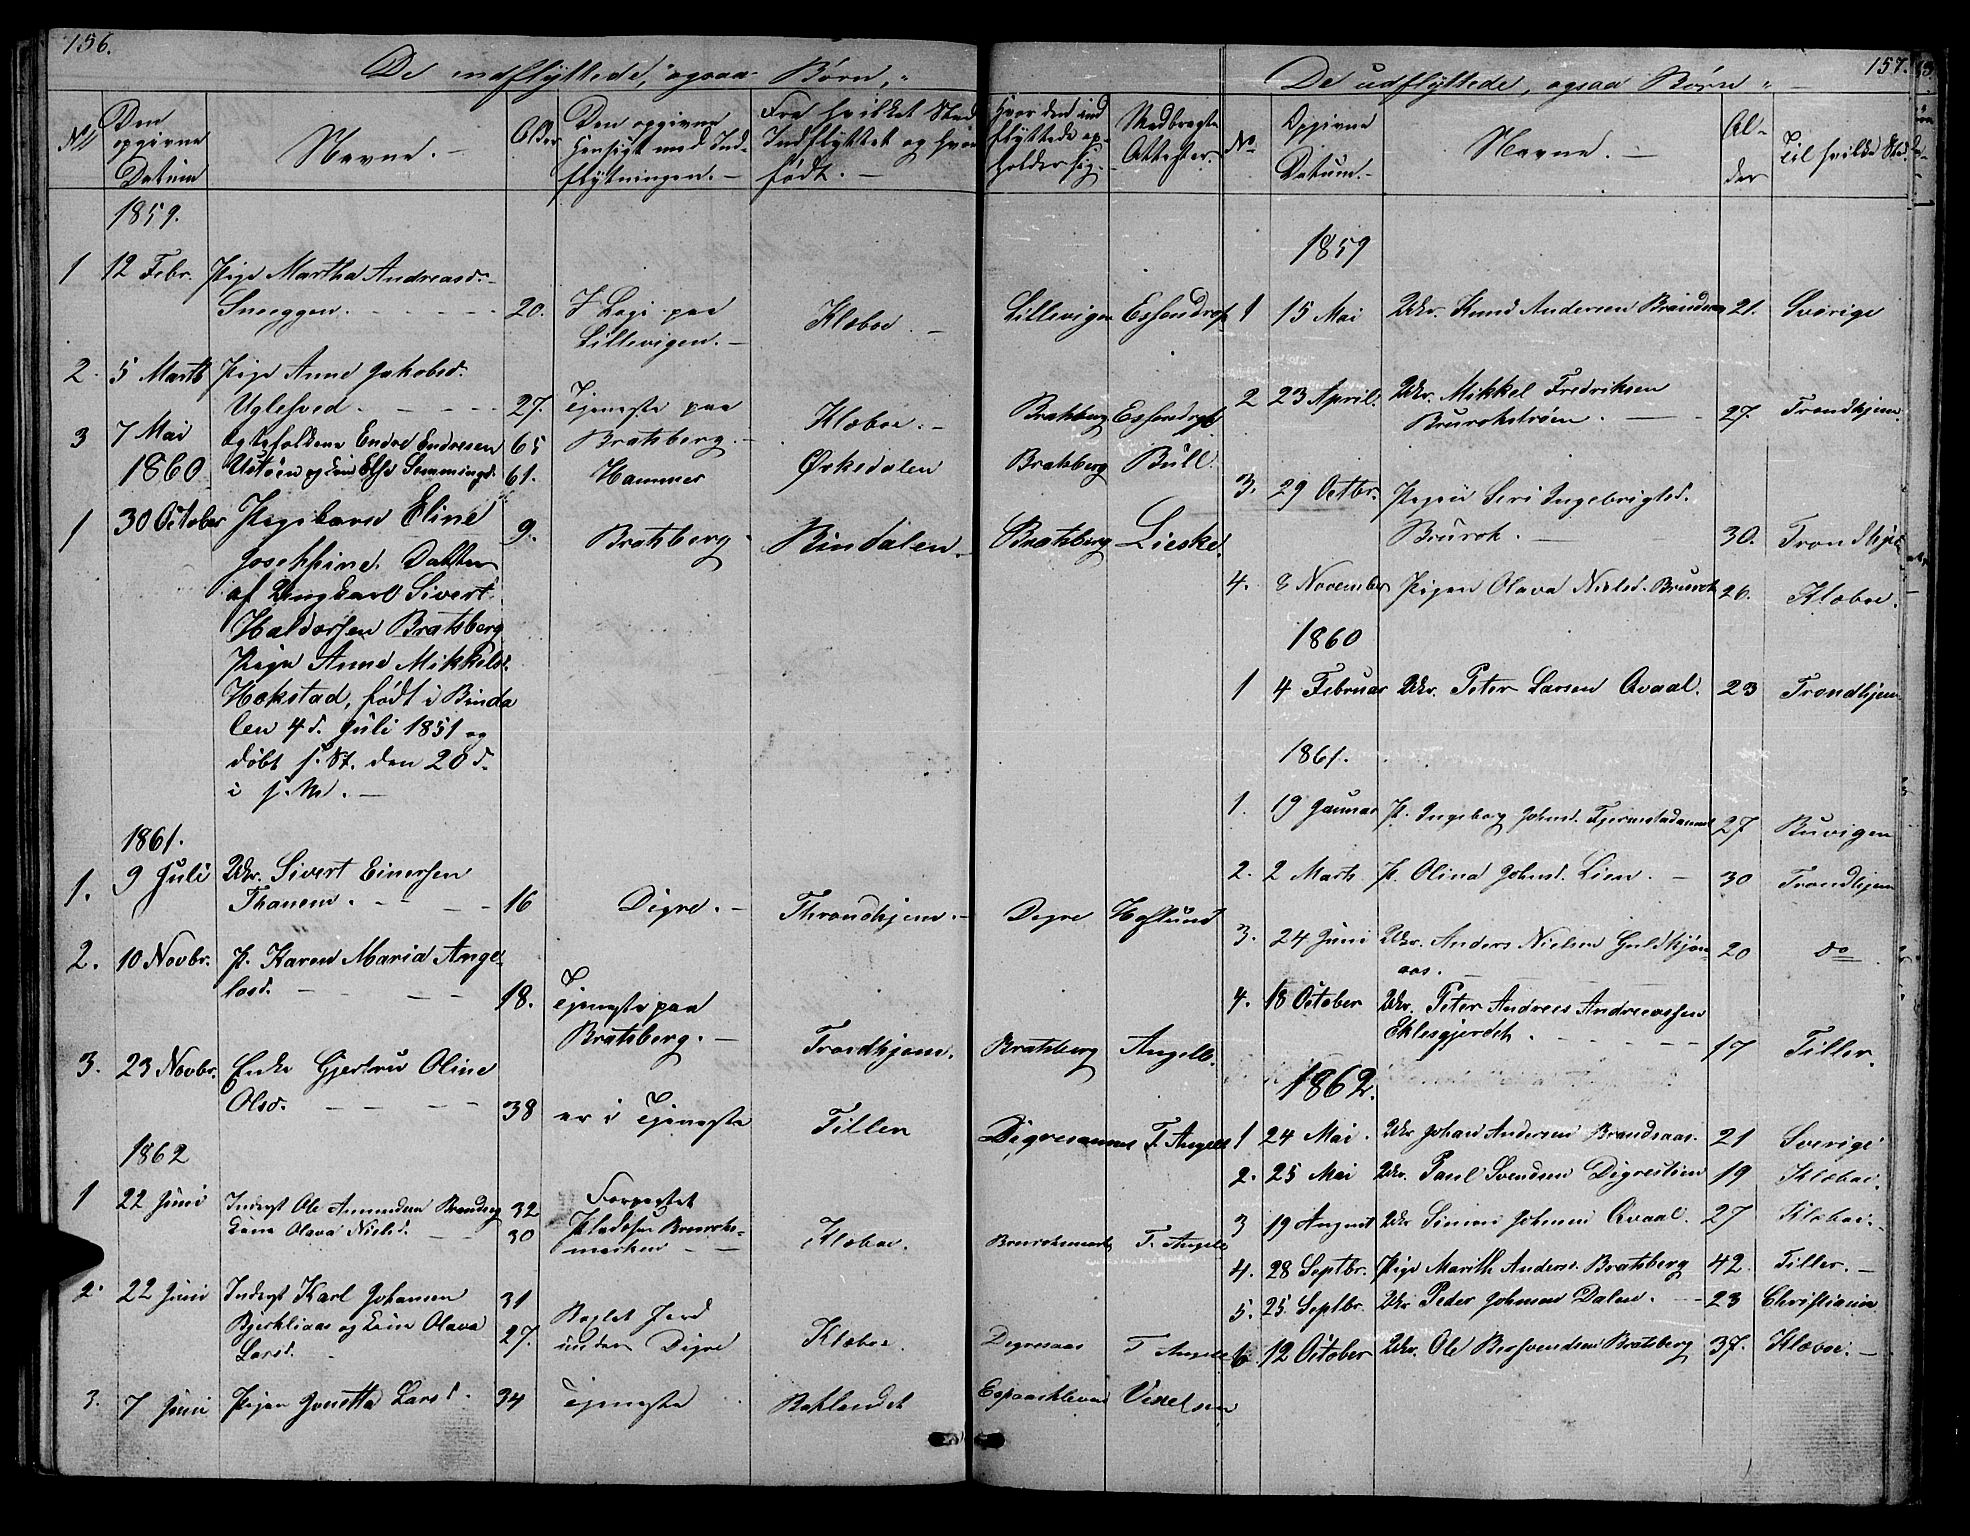 156.
De indflyttede, ogsaa Børn,
No
Den opgivne Datum
Navne.
Alder
Den opgivne Hensigt med Indflytningen.
Fra hvilket Sted Indflyttet og hvor født.
Hvor den indflyttede opholder sig.
Medbragte Attester.
1859.
1 12 Febr. Pige Martha Andreasd.
Sneeggen. 20. I Logi paa Lillevigen. Klæboe. Lillevigen Essendrop
2. 5 Marts Pige Anne Jakobsd.
Uglehved. 27. Tjeneste paa Bratsberg. Klæboe. Bratsberg Essendrop
3 7 Mai Egtefolkene Endre Endresen 65
Ustøen og Kone Else Semmingsd. 61. Hammer Ørkedalen Bratsberg Bull.
1860
1 30 October Pigebarn Eline 9. Bratsberg Bindalen Bratsberg Lieske.
Josephine. Datter
af Ungkarl Sivert
Haldorsen Bratsberg
Pige Anne Mikkelsd.
Hokstad, født i Binda
len 4 d. Juli 1851 og
døbt s. St. den 20 d.
i s. M.
1861.
1. 9 Juli Ukr. Sivert Einersen
Thanem. 16 Digre. Throndhjem. Digre Høslund
2. 10 Novbr. P. Karen Maria Ange
losd. 18. Tjeneste paa
Bratsberg. Trondhjem. Bratsberg Angell.
3. 23 Novbr. Enke Gjertru Oline
Olsd. 38 er i Tjeneste Tiller Digresaunet F. Angell
1862
1 22 Juni Inderst Ole Amundsen Brandseg 32
Kone Olava Nielsd. 30 Forpagtet Pladsen Bruroksmarken Klæboe. Bruroksmark F. Angell
2. 22 Juni Inderst Karl Johansen 31
Bjerkliaas og Kone Olava 27. Bøxlet Jord
Larsd. under Digre Klæboe. Digresaas F Angell
3. 7 Juni Pigen Jonetta Larsd. 34 Tjeneste Baklandet Espaasklevan Vesselsen
157.
De udflyttede, ogsaa Børn
No
Opgivne Datum.
Navne.
Alder
Til hvilke Sted
1859
1 15 Mai Ukr. Knud Andersen Brandsaa 21. Sverige
2 23 April. Ukr. Mikkel Fredriksen
Brurokstrøen. 27. Trondhjem
3. 29 Octbr. Pigen Seri Ingebrigtsd.
Brurok. 30. Trondhjem
4. 8 November Pigen Olava Nielsd. Brurok 26. Klæboe.
1860
1 4 Februar Ukr. Peter Larsen Qvaal. 23 Trondhjem
1861.
1. 19 Januar P. Ingeborg Johnsd. Fjeremstadaunet 27 Buvigen
2. 2 Marts P. Olina Johnsd. Lien. 30 Trondhjem
3. 24 Juni Ukr. Anders Nielsen Guldkjøn
aas. 20 do
4. 18 October Ukr. Peter Andreas Andreassen
Eklesgjerdet. 17 Tiller.
1862.
1 24 Mai. Ukr Johan Andersen Brandsaas. 21 Sverige
2. 25 Mai Ukr. Paul Svendsen Digrestien 19 Klæboe.
3 19 August Ukr Simon Johnsen Qvaal. 27 Klæboe.
4. 28 Septbr. Pige Marith Andersd. Bratsberg 42. Tiller.
5. 25. Septbr. Ukr Peder Johnsen Dalen. 23 Christiania
6. 12 October Ukr. Ole Berhvendsen Bratsberg 37. Klæboe.